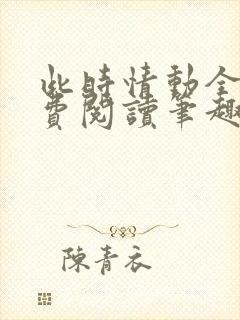 此時情動全
費閱讀筆趣
陳青衣